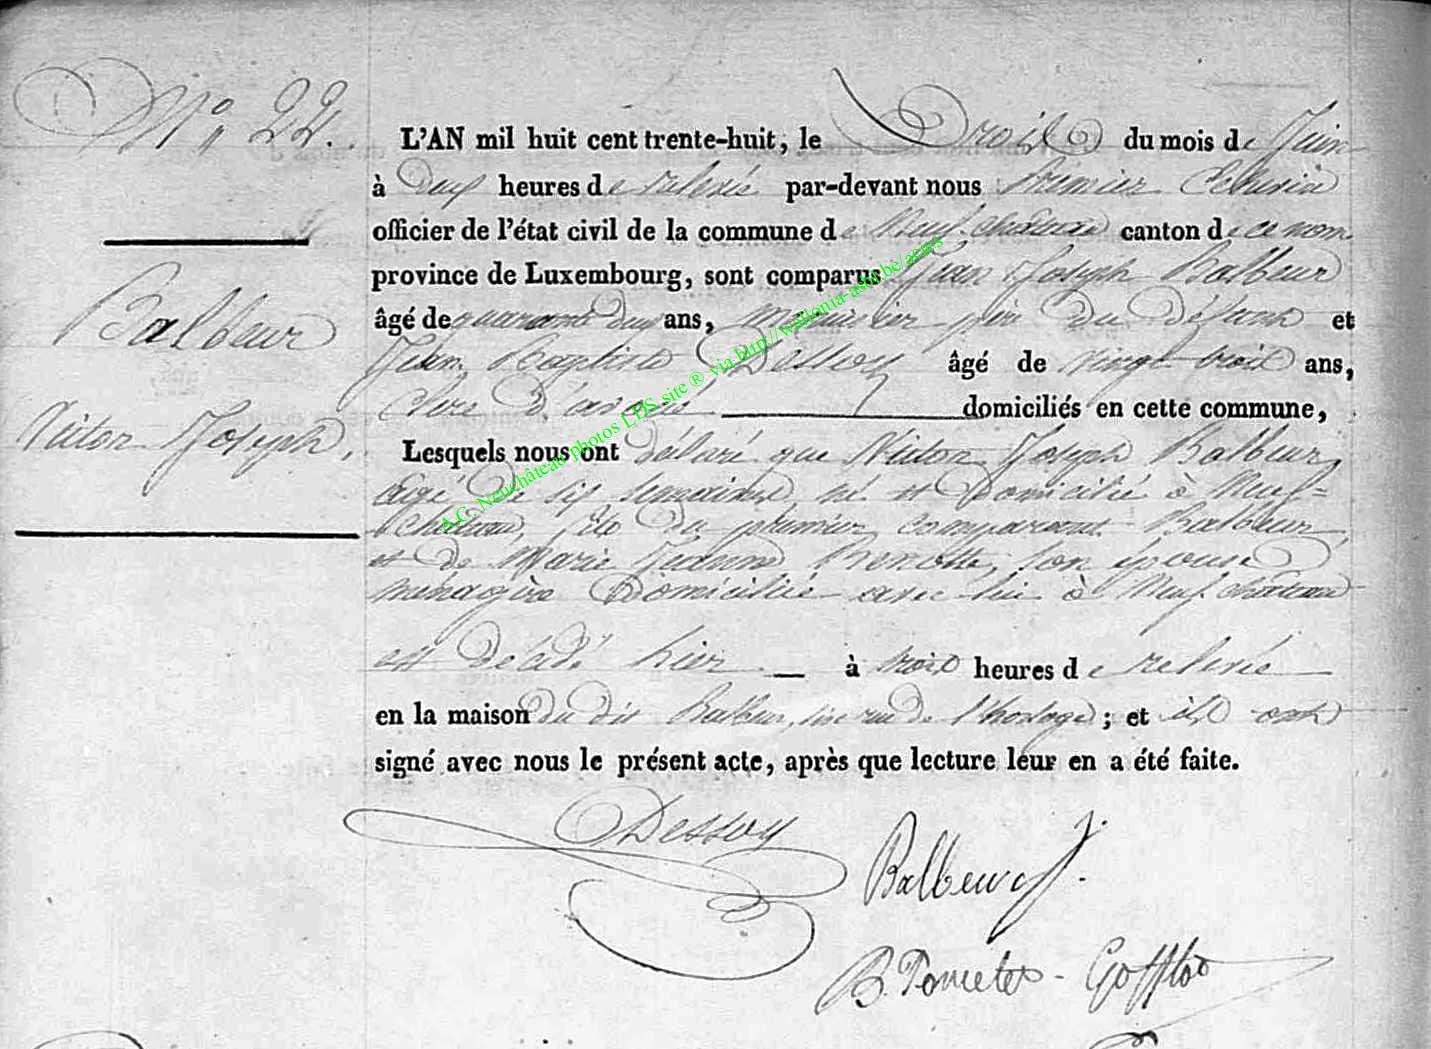 N° 22.
L'AN mil huit cent trente-huit, le Trois du mois de Juin
à deux heures de relevée par-devant nous Premier Echevin
officier de l'état civil de la commune de Neufchateau canton de ce nom
province de Luxembourg, sont comparus Jean Joseph Balbeur
âgé de quarante deux ans, menuisier père du défunt et
Balbeur
Jean Baptiste Dessoy âgé de vingt trois ans,
Clerc d'avoué domiciliés en cette commune,
Victor Joseph.
Lesquels nous ont déclaré que Victor Joseph Balbeur,
agé de six semaines né et domicilié à Neuf=
chateau, fils du premier comparant Balbeur,
et de Marie Jeanne son épouse
ménagère domiciliée avec lui à Neufchateau
est décédé hier à trois heures de relevée
en la maison du dit Balbeur, sise rue de l'horloge ; et ils ont
signé avec nous le présent acte, après que lecture leur en a été faite.
Dessoy
Balbeur J.
B. - 
A.C. Neuchâteau photos LDS site ® via http://wallonia-asbl.be/actes